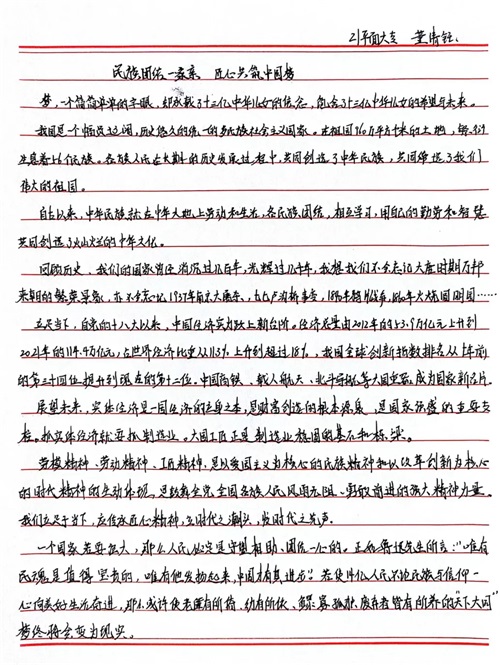 21平面大专 董清钰
民族团结一家亲 匠心共筑中国梦
梦,一个简简单单的字眼,却承载了十三亿中华儿女的信念,包含了十三亿中华儿女的希望与未来。
我国是一个幅员辽阔,历史悠久的统一的多民族社会主义国家。在祖国960万平方千米的土地,
生息着56个民族。各族人民在长期的历史发展过程中,共同创造了中华民族,共同缔造了我们
伟大的祖国。
自古以来,中华民族就在中华大地上劳动和生活,各民族团结,相互学习,用自己的勤劳和智慧
共同创造了灿烂的中华文化。
回顾历史、我们的国家曾经消沉过几百年,光辉过几千年,我想我们不会忘记大唐时期万邦
来朝的繁荣景象,亦不会忘记1937年南京大屠杀,九一八事变,1894年,1860年火烧圆明园……
立足当下,自党的十八大以来,中国经济实力跃上新台阶。经济总量由2012年的53.9万亿元上升到
2021年的114.9万亿元,占世界经济比重从11.3%上升到超过18%,我国全球创新指数排名从
的第三十四位提升到现在的第十二位。中国高铁、载人航天、北斗导航等大国重器,成为国家新名片。
展望未来,实体经济是一国经济的立身之本,是财富创造的根本源泉,是国家强盛的重要支
柱。抓实体经济就要抓制造业。大国工匠正是制造业强国的基石和栋梁。
劳模精神、劳动精神、工匠精神,是以爱国主义为核心的民族精神和以改革创新为核心
的时代精神的生动体现,是鼓舞全党全国各族人民风雨无阻、勇敢前进的强大精神力量。
我们立足于当下,应传承匠心精神,立时代之潮头,发时代之先声。
一个国家若要强大,那么人民必定是守望相助、团结一心的。正如鲁迅先生所言:"唯有
民魂是值得宝贵的,唯有他发扬起来,中国才有真进步"。若使亿人民不论民族与信仰一
心向美好生活奋进,那么或许使老有所终、幼有所依、鳏寡孤独、废疾者皆有所养的"天下大同"
梦终将会变为现实。